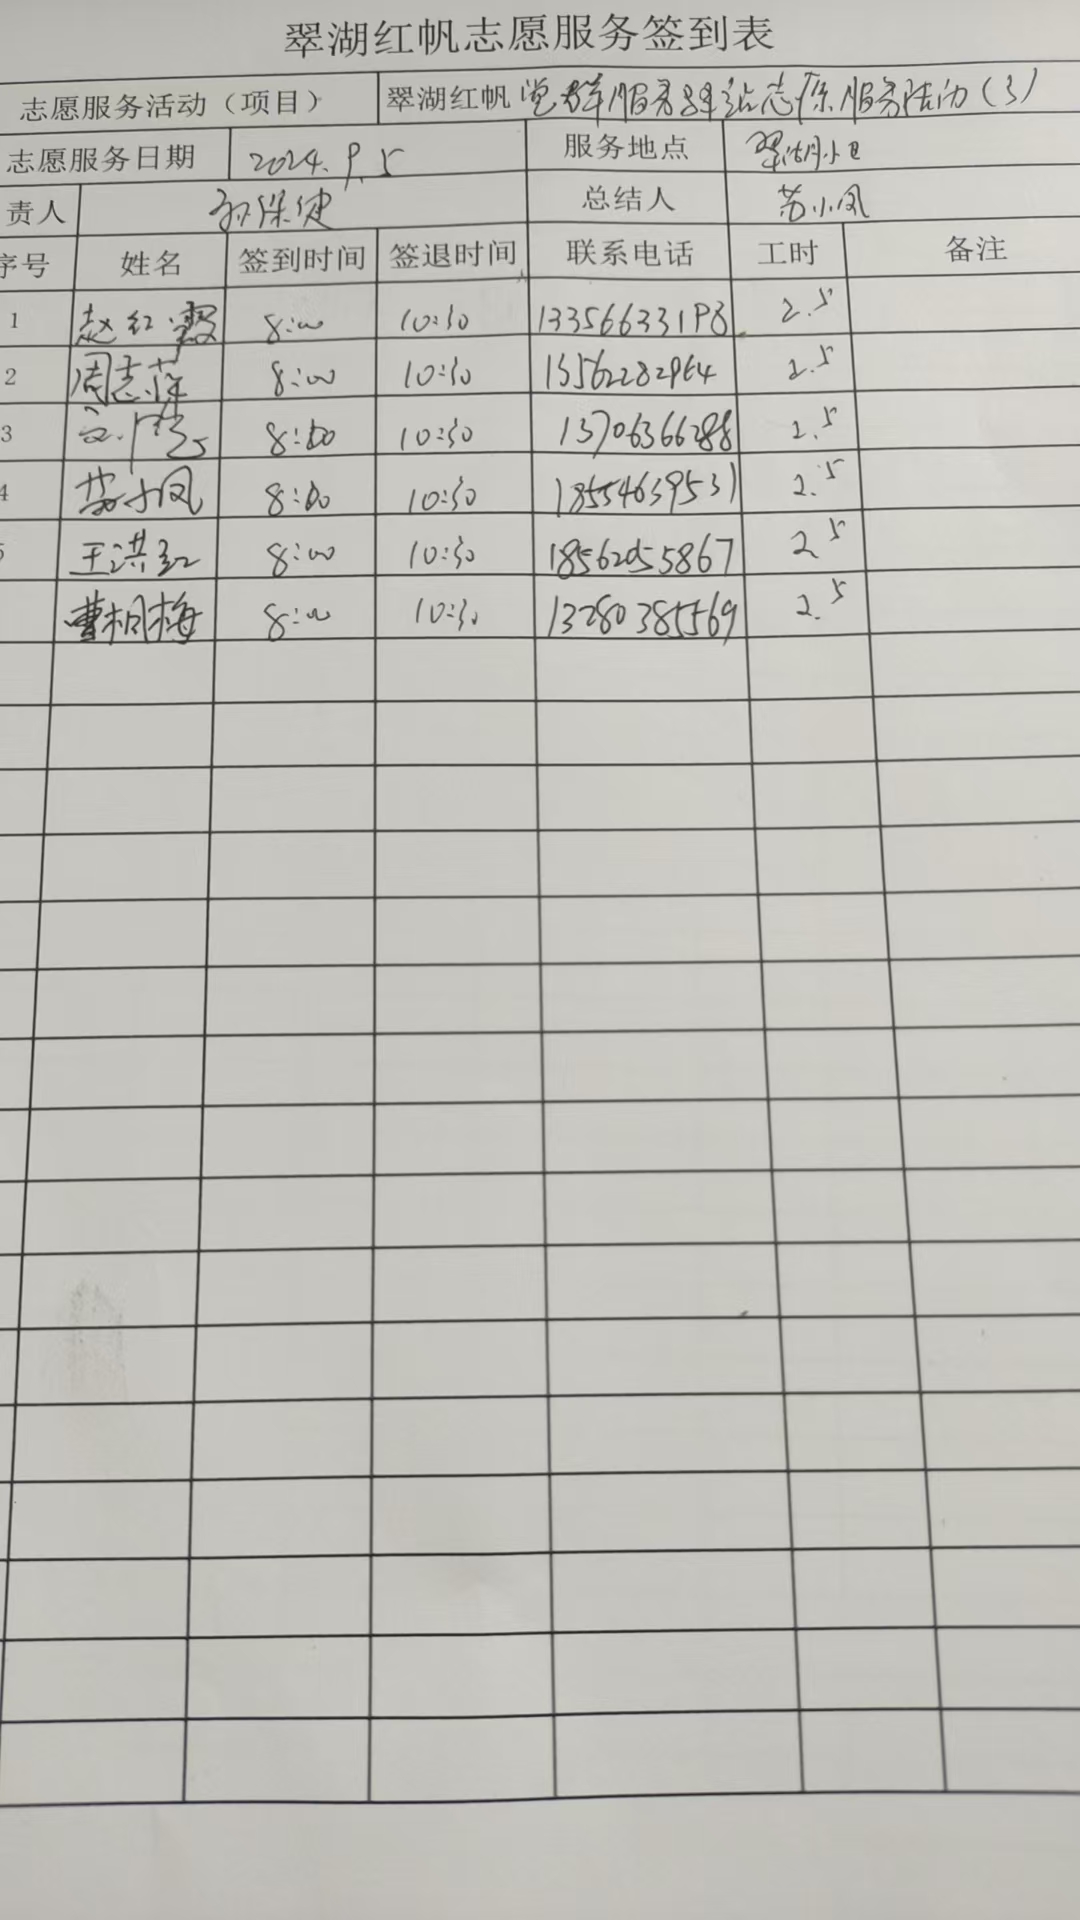 翠湖红帆志愿服务签到表
志愿服务活动（项目） 翠湖红帆党群服务驿站志愿服务活动(3)
志愿服务日期 2024.9.5 服务地点 翠湖小区
责人 孙保健 总结人 苏小凤
序号 姓名 签到时间 签退时间 联系电话 工时 备注
1 赵红霞 8:00 10:30 13356633198 2.5
2 周志萍 8:00 10:30 13562282964 2.5
3 8:00 10:30 13706366288 2.5
4 苏小凤 8:00 10:30 18554639531 2.5
5 王洪红 8:00 10:30 18562055867 2.5
曹桐梅 8:00 10:30 13280385569 2.5